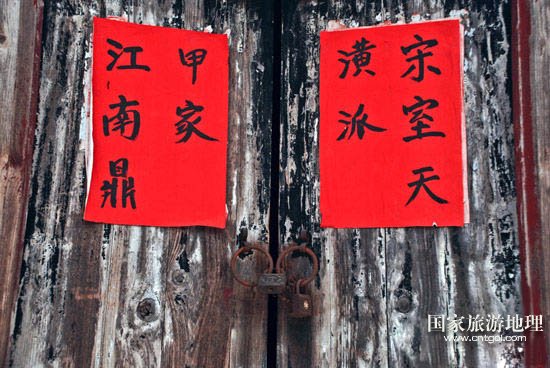 宋室天
潢派
江南鼎
甲家
国家旅游地理
www.cntgol.com